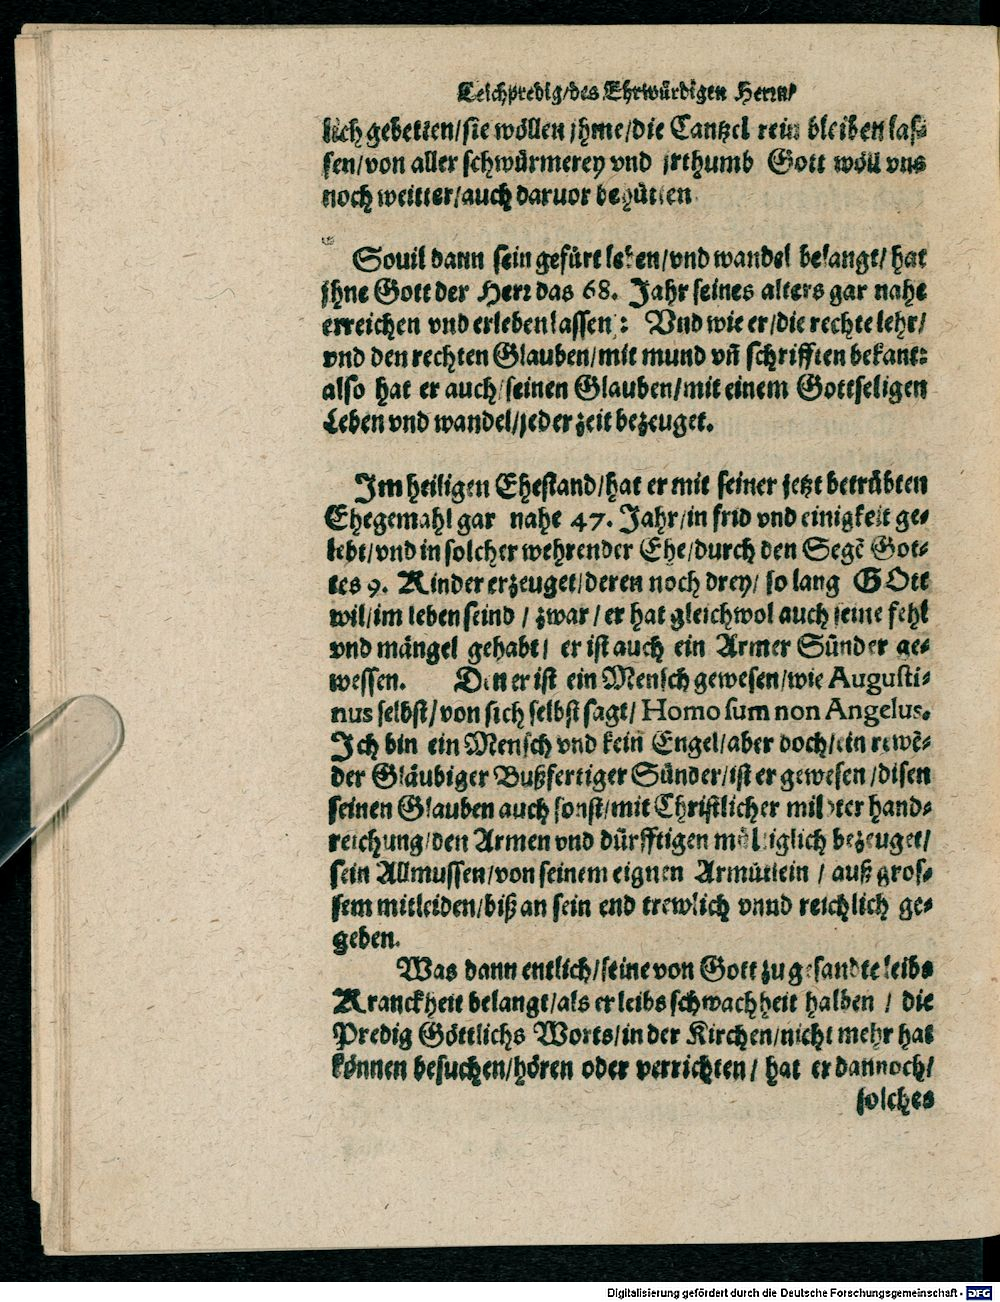 Leichpredig/des Ehrwürdigen Herrn/
lich gebetten/sie wöllen jhme/die Cantzel rein bleiben las-
sen/von aller schwürmerey vnd jrthumb Gott wöll vns
noch weitter/auch daruor behütten
Souil dann sein gefürt leben/vnd wandel belangt/hat
jhne Gott der Herr das 68. Jahr seines alters gar nahe
erreichen vnd erleben lassen: Vnd wie er/die rechte lehr/
vnd den rechten Glauben/mit mund vñ schrifften bekant:
also hat er auch/seinen Glauben/mit einem Gottseligen
Leben vnd wandel/jeder zeit bezeuget.
Im heiligen Ehestand/hat er mit seiner jetzt betrübten
Ehegemahl gar nahe 47. Jahr/in frid vnd einigkeit ge-
lebt/vnd in solcher wehrender Ehe/durch den Segē Got-
tes 9. Kinder erzeuget/deren noch drey/so lang GOtt
wil/im leben seind/zwar/er hat gleichwol auch seine fehl
vnd mängel gehabt/er ist auch ein Armer Sünder ge-
wessen. Den er ist ein Mensch gewesen/wie Augusti-
nus selbst/von sich selbst sagt/Homo sum non Angelus.
Ich bin ein Mensch vnd kein Engel/aber doch/ein rewē-
der Gläubiger Bußfertiger Sünder/ist er gewesen/disen
seinen Glauben auch sonst/mit Christlicher milter hand-
reichung/den Armen vnd dürfftigen mültiglich bezeuget/
sein Allmussen/von seinem eignen Armütlein/auß gros-
sem mitleiden/biß an sein end trewlich vnnd reichlich ge-
geben.
Was dann entlich/seine von Gott zu gesandte leibs
Kranckheit belangt/als er leibs schwachheit halben/die
Predig Göttlichs Worts/in der Kirchen/nicht mehr hat
können besuchen/hören oder verrichten/hat er dannoch/
solches
Digitalisierung gefördert durch die Deutsche Forschungsgemeinschaft - DFG